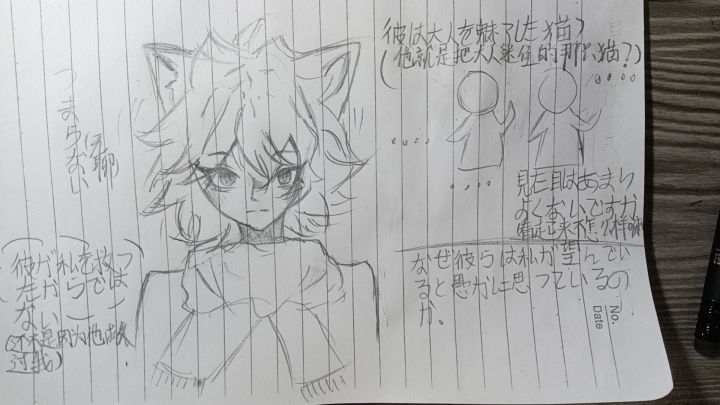 彼は大人を魅了した猫？
（他就是把大人迷住的那只猫？）
つまらない
无聊
見た目はあまり
よくないですが
看起来不怎么样啊
なぜ彼らは私が望んでい
ると愚かに思っているの
か。
（彼が私を救っ
たからでは
ない）
（还不是因为他
过我）
No.
Date